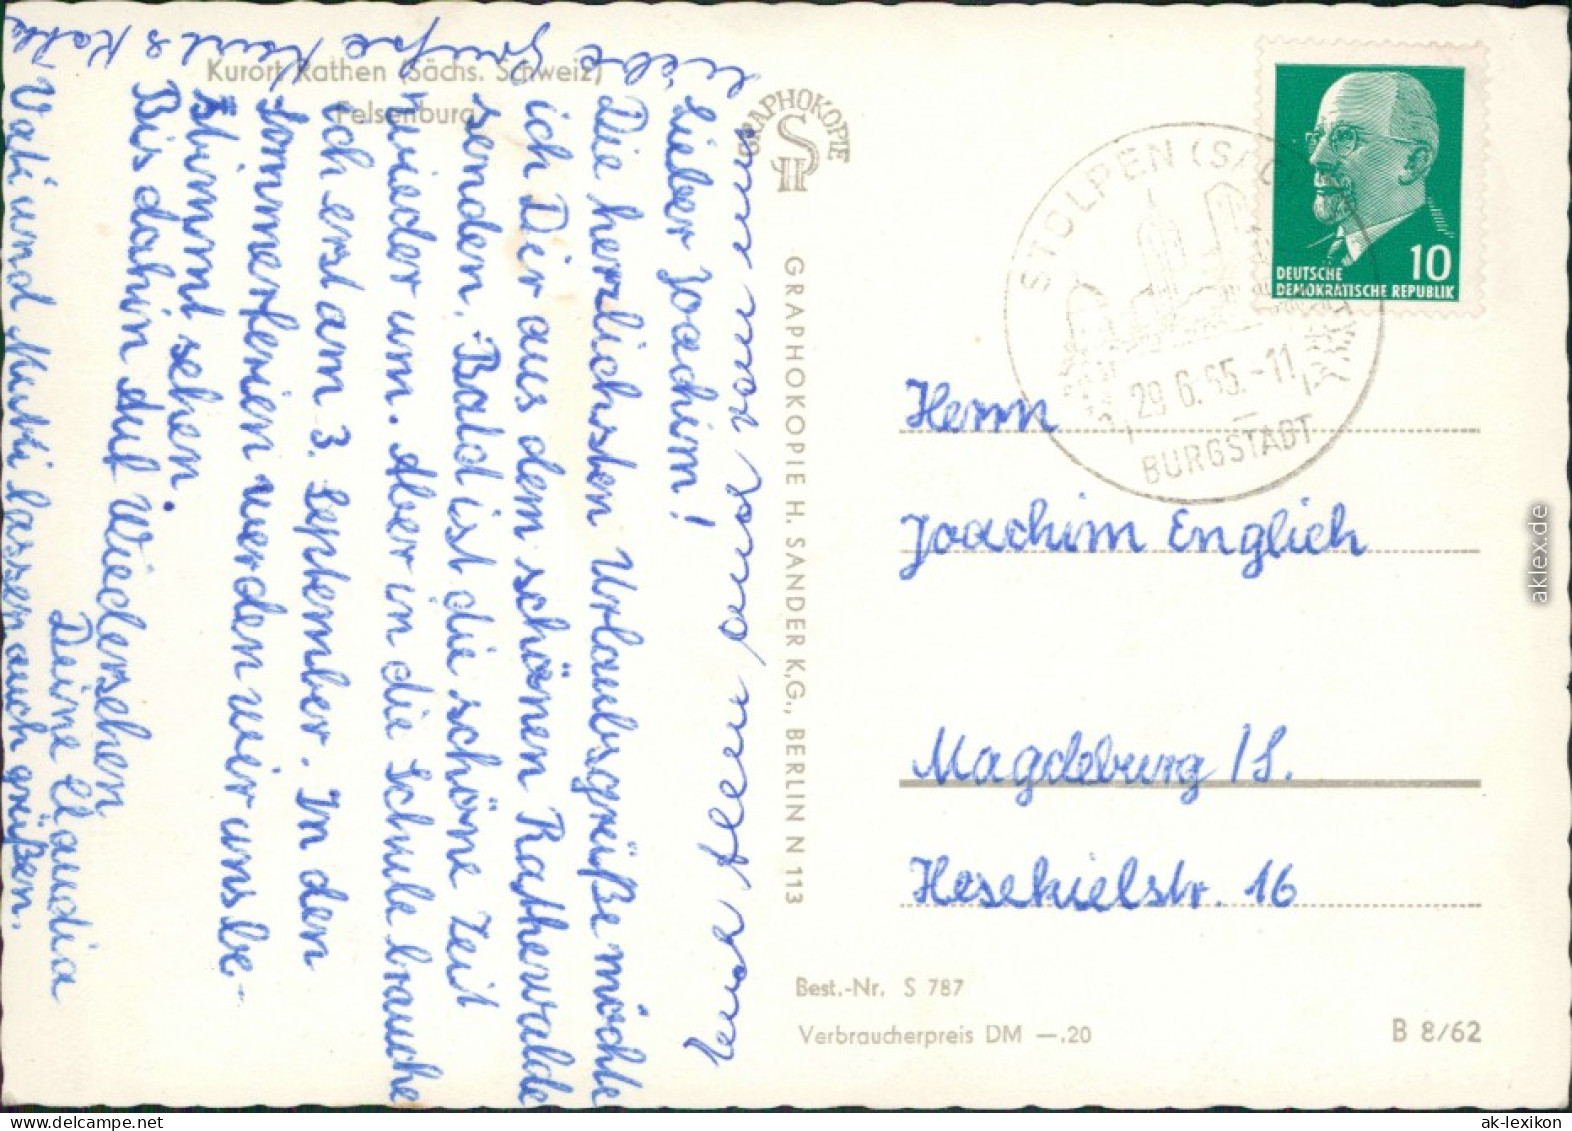 Kurort Rathen (Sächs. Schweiz)
Felsenburg
Lieber Joachim!
Die herzlichsten Urlaubsgrüße möchte
ich Dir aus dem schönen Rathewalde
senden. Bald ist die schöne Zeit
wieder um. Aber in die Schule brauche
ich erst am 3. September. In den
Sommerferien werden wir uns be-
stimmt sehen.
Bis dahin auf Wiedersehen
Deine Claudia
Vati und Mutti lassen auch grüßen.
GRAPHOKOPIE
SH
GRAPHOKOPIE H. SANDER K.G., BERLIN N 113
STOLPEN (SACHS
29.6.65.-11
BURGSTADT
10
DEUTSCHE
DEMOKRATISCHE REPUBLIK
Herrn
Joachim Englich
Magdeburg /S.
Hesekielstr. 16
Best.-Nr. S 787
Verbraucherpreis DM —.20
B 8/62
aklex.de
ak-lexikon